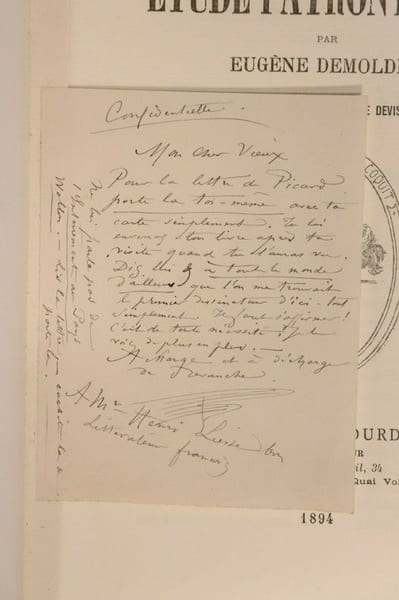 ÉTUDE PATRON
PAR
EUGÈNE DEMOLD
E DEVIS
COQUIT
Confidentielle.
Mon cher Vieux
Pour la lettre de Picard
porte la toi-même avec ta
carte simplement. Tu lui
enverras ton livre après ta
visite quand tu l'auras vu.
Dis lui & à tout le monde
d'ailleurs que l'on me trouvait
le premier dessinateur d'ici - tout
simplement. Il faut s'affirmer!
C'est de toute nécessité! Je le
vois de plus en plus. —
A charge et à décharge
de revanche.
A Mr Henri
Littérateur français
Ne lui parle pas de
l'Enterrement au Pays
Wallon. — Lis la lettre, cachète la &
porte la.
OURD
UR
il, 34
Quai Vol
1894